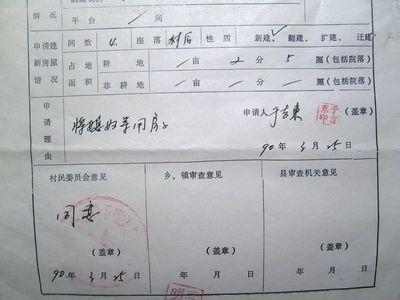 情况 平台 / 间
申请建 间数 4 座落 村后 性质 新建、翻建、扩建、迁建
新房屋 占地 耕地 / 亩 2 分 5 厘(包括院落)
情况 面积 非耕地 / 亩 / 分 / 厘(包括院落)
申请理由
申请人 于吉东 (盖章)
90 年 3 月 25 日
村民委员会意见 乡、镇审查意见 县审查机关意见
同意
(盖章) (盖章) (盖章)
90 年 3 月 25 日 年 月 日 年 月 日